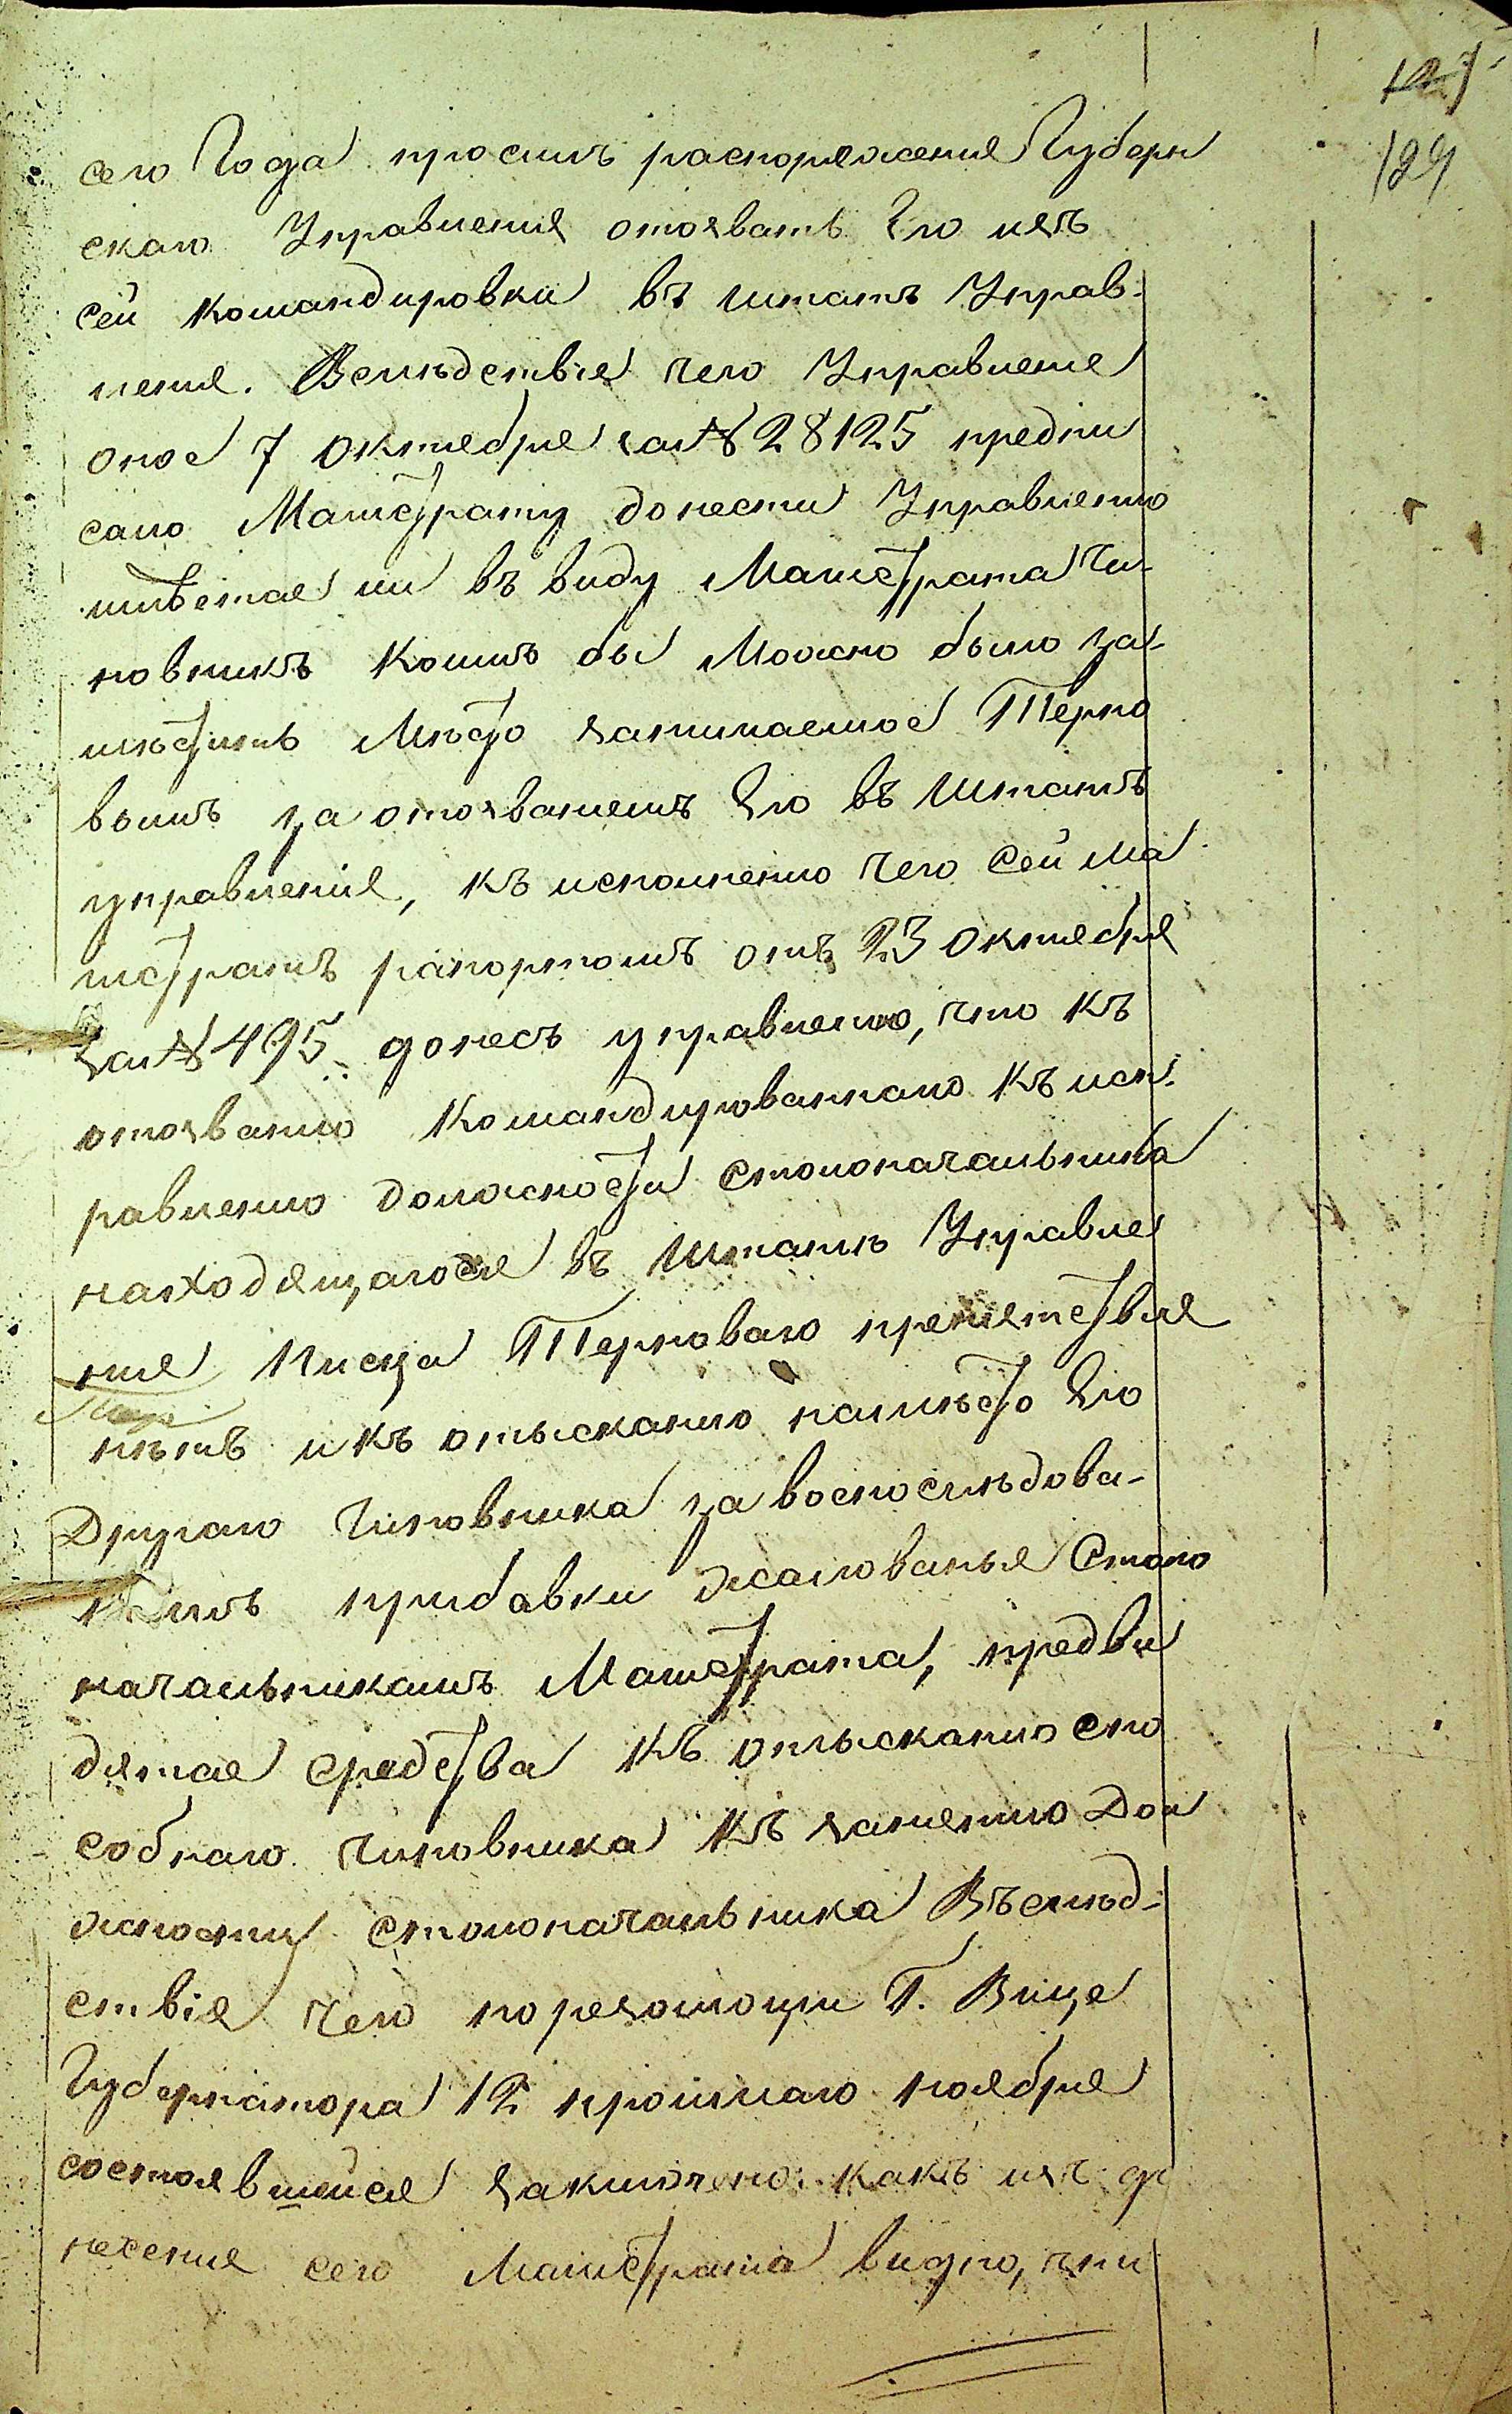 127
124
сего Года просилъ распоряженія Губерн
скаго Управленія отозвать Его изъ
сей командировки въ штатъ Управ-
ленія. Вслѣдствіе чего Управленіе
оное 7 Октебря за № 28125 предпи
сало Магистрату донести Управленію
имѣетсе ли въ виду Магистрата Чи-
новникъ коимъ бы можно было за-
мѣстить Мѣсто занимаемое Терно
вымъ за отозваніемъ Его въ штатъ
управленія, къ исполненію чего Сей Ма
гистратъ рапортомъ отъ 23 октебря
за № 495 донесъ управленію, что къ
отозванію командированнаго къ исп-
равленію должности столоначальника
находящагося въ штатѣ Управле
ніе Писца Терноваго препятствія
нѣтъ и къ отысканію намѣсто Его
Другаго Чиновника за воспослѣдова-
ніемъ прибавки жалованья Столо
начальникамъ Магистрата, предви
дятсе средства къ отысканію спо
собнаго чиновника къ занятію Дол
жности столоначальника Въслѣд-
ствіе чего по резолюціи Г. Вице
Губернатора 12 прошлаго ноября
состоявшейсе заключено: какъ изъ до
несенія сего Магистрата видно, что